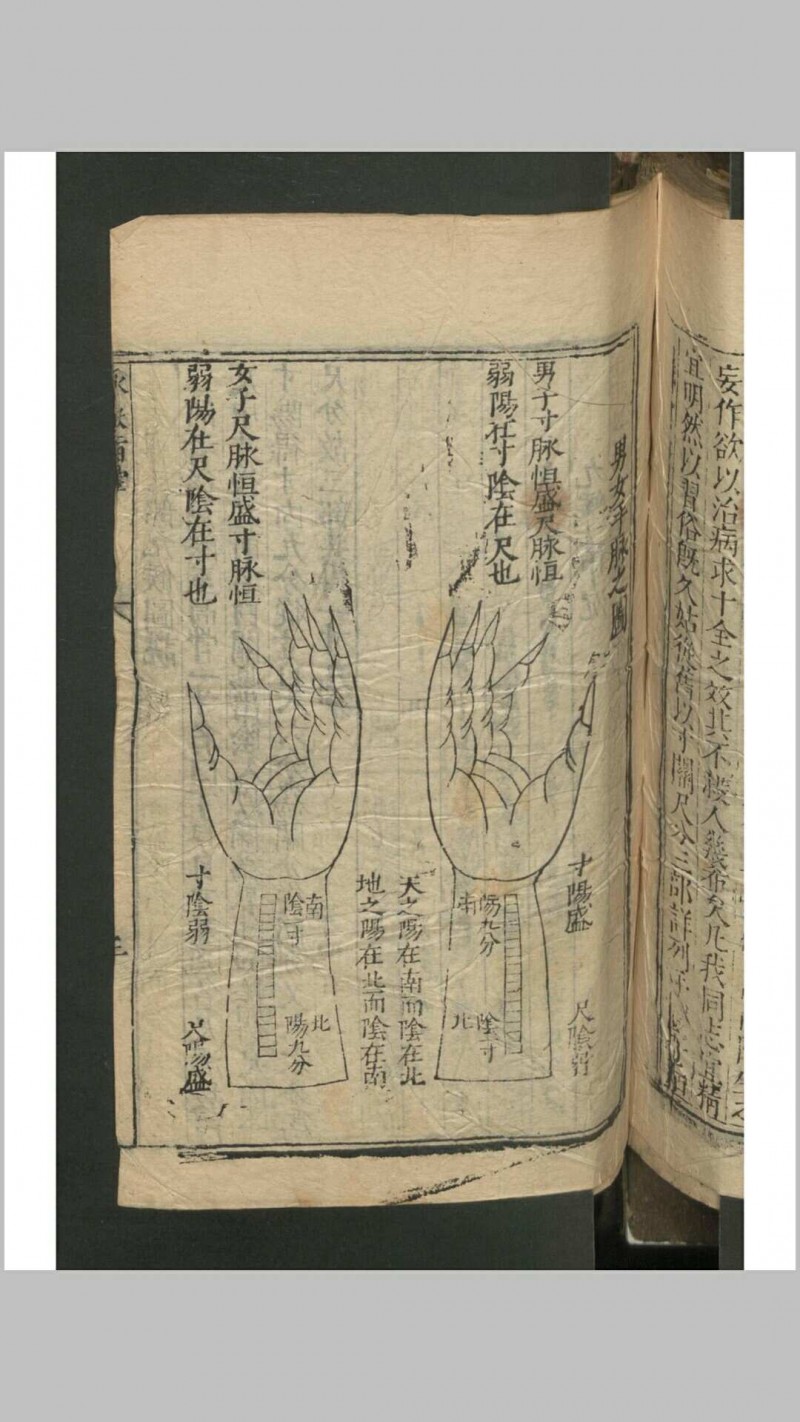 妄作欲以治病求十全之效其不殺人幾希矣凡我同志宜精
宜明然以習俗既久姑從舊以寸關尺分三部詳列于
男女手脉之圖
男子寸脉恒盛尺脉恒
弱陽在寸陰在尺也
寸陽盛
尺陰弱
陽九分
南
陰寸
北
天之陽在南而陰在北
地之陽在北而陰在南
女子尺脉恒盛寸脉恒
弱陽在尺陰在寸也
南
陰寸
北
陽九分
寸陰弱
尺陽盛